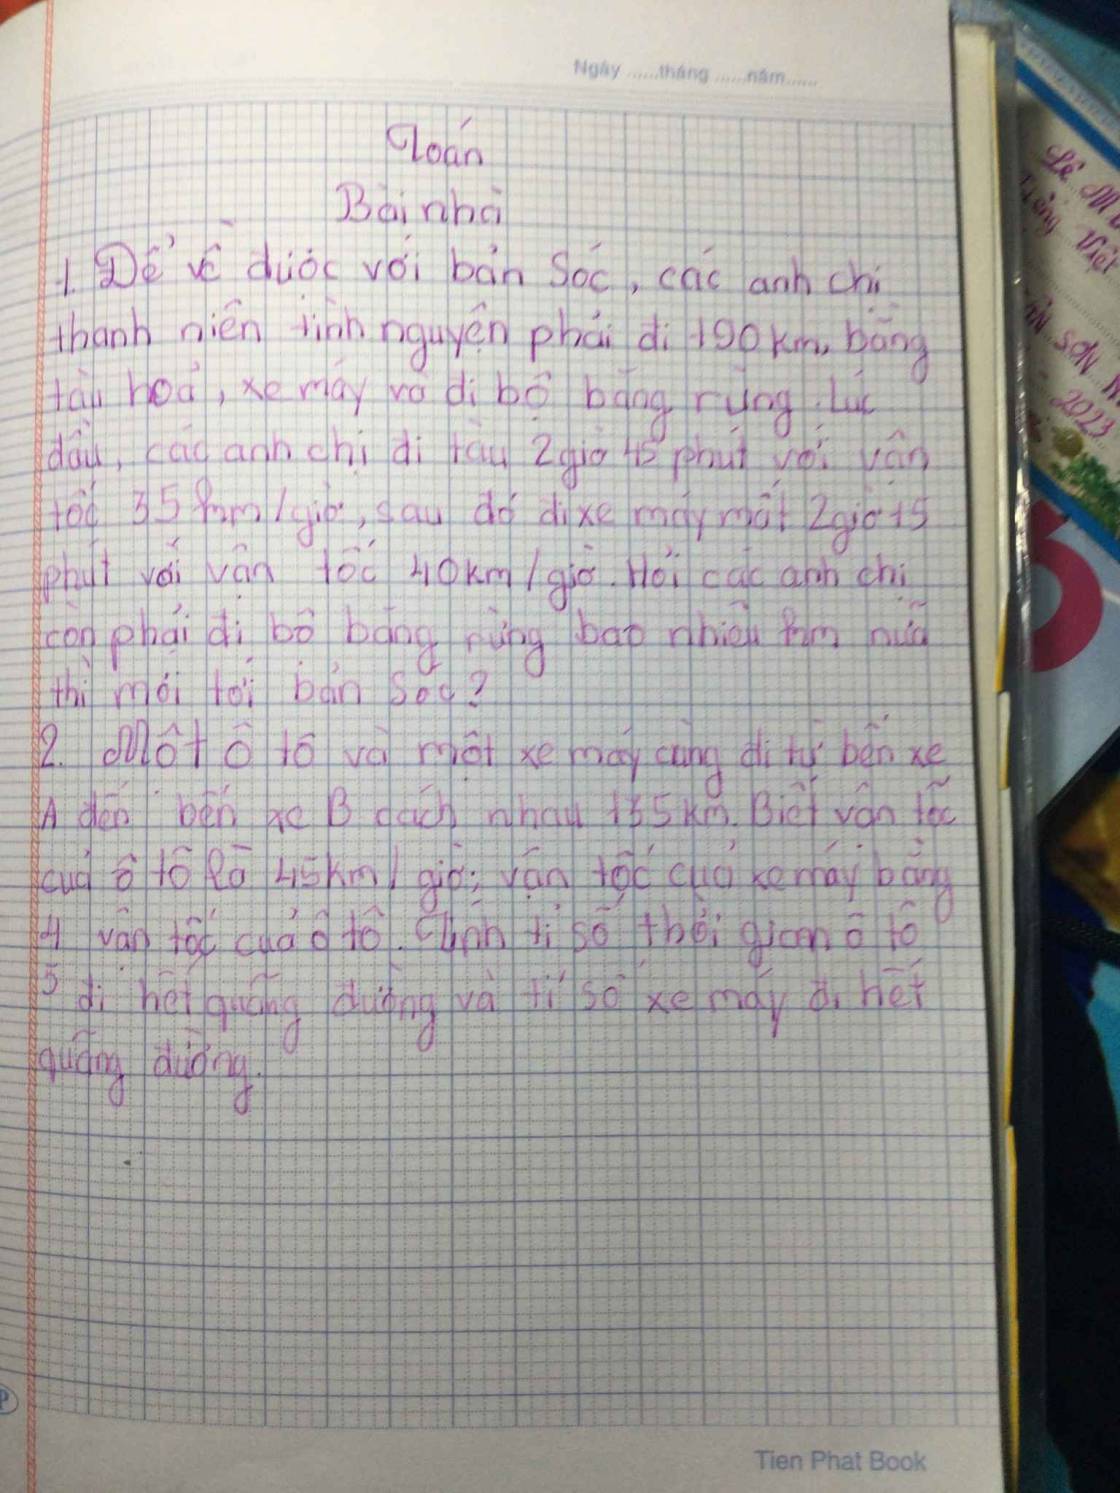 Ngày ......tháng ......năm......
Toán
Bài nhà
1. Để về được với bản Sóc, các anh chị
thanh niên tình nguyện phải đi 190 km, bằng
tàu hoả, xe máy và đi bộ băng rừng. Lúc
đầu, các anh chị đi tàu 2 giờ 15 phút với vận
tốc 35 km/giờ, sau đó đi xe máy mất 2 giờ 15
phút với vận tốc 40km/giờ. Hỏi các anh chị
còn phải đi bộ băng rừng bao nhiêu km nữa
thì mới tới bản Sóc?
2. Một ô tô và một xe máy cùng đi từ bến xe
A đến bến xe B cách nhau 135 km. Biết vận tốc
của ô tô là 45km/giờ; vận tốc của xe máy bằng
4 vận tốc của ô tô. Tính tỉ số thời gian ô tô
5 đi hết quãng đường và tỉ số xe máy đi hết
quãng đường.
Tien Phat Book
Lê M
Tiếng Việt
SƠN
2023
5